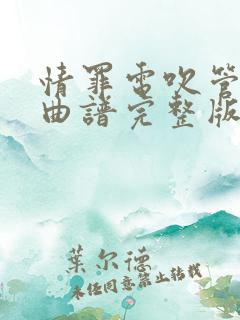 情罪电吹管
曲谱完整版
葉尔德
未经同意禁止转载